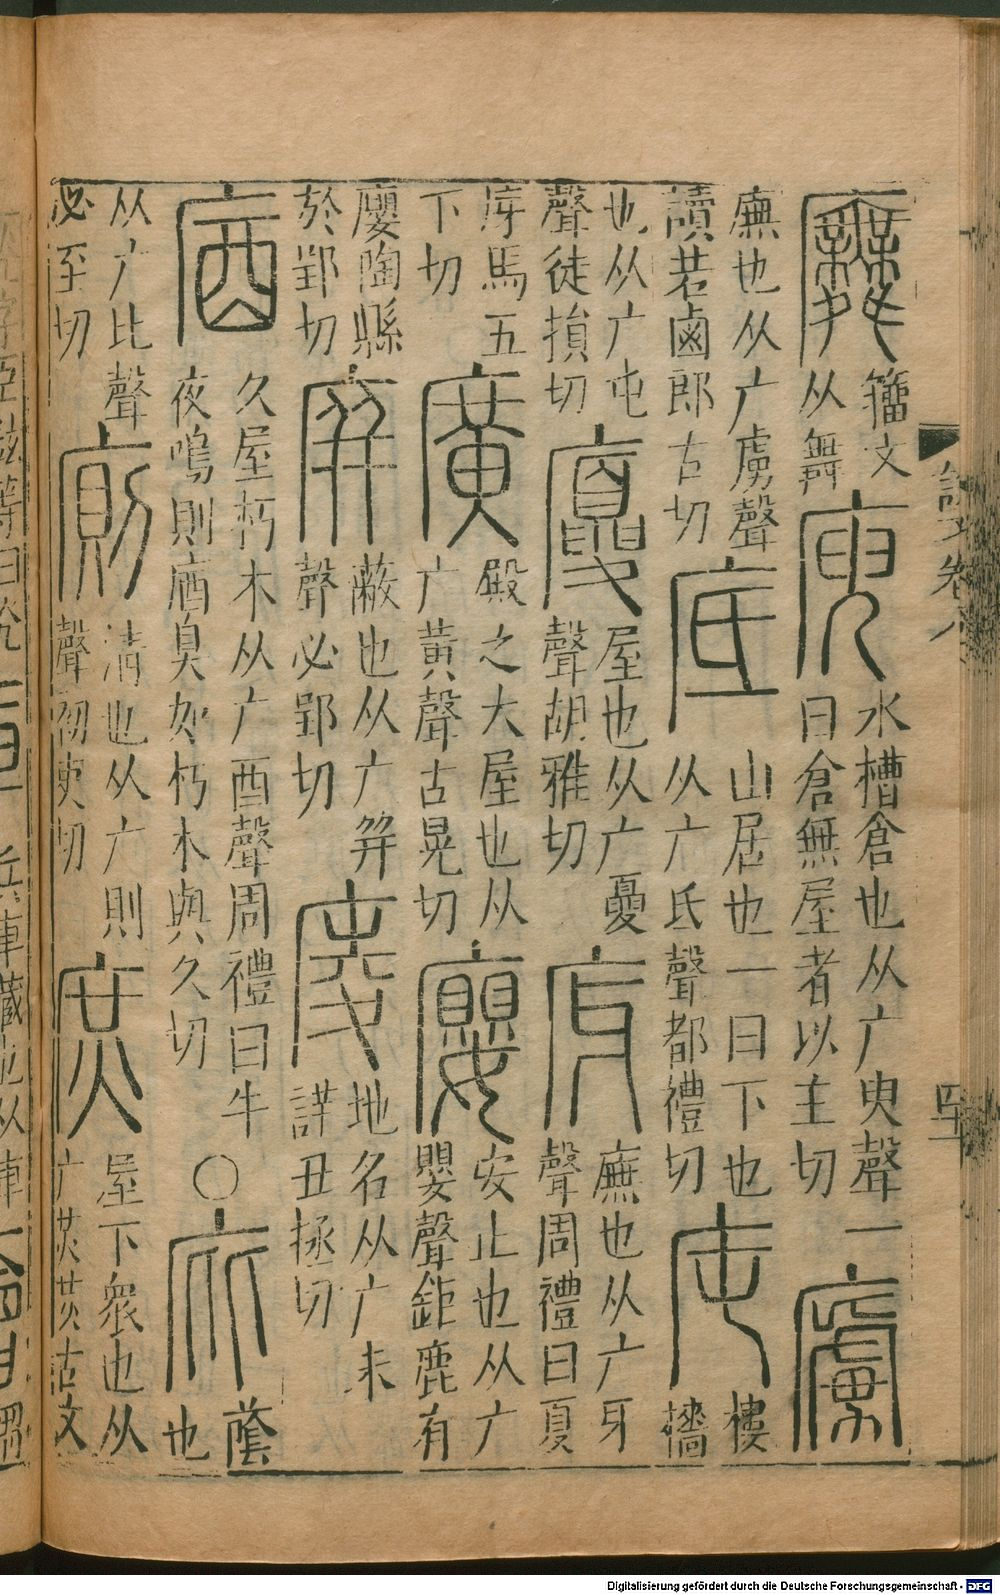 說文卷八
廡籀文从舞庾水槽倉也从广臾聲一曰倉無屋者以主切㢚
廡也从广虜聲讀若鹵郎古切底山居也一曰下也从广氐聲都禮切庉樓牆
也从广屯聲徒損切廈屋也从广憂聲胡雅切庌廡也从广牙聲周禮曰夏
庌馬五下切廣殿之大屋也从广黃聲古晃切廮安止也从广嬰聲鉅鹿有
廮陶縣於郢切庰蔽也从广并聲必郢切 地名从广未詳丑拯切
庮久屋朽木从广酉聲周禮曰牛夜鳴則庮臭如朽木與久切〇庇蔭也
从广比聲必至切廁清也从广則聲初吏切庶屋下衆也从广炗炗古文
Digitalisierung gefördert durch die Deutsche Forschungsgemeinschaft - DFG